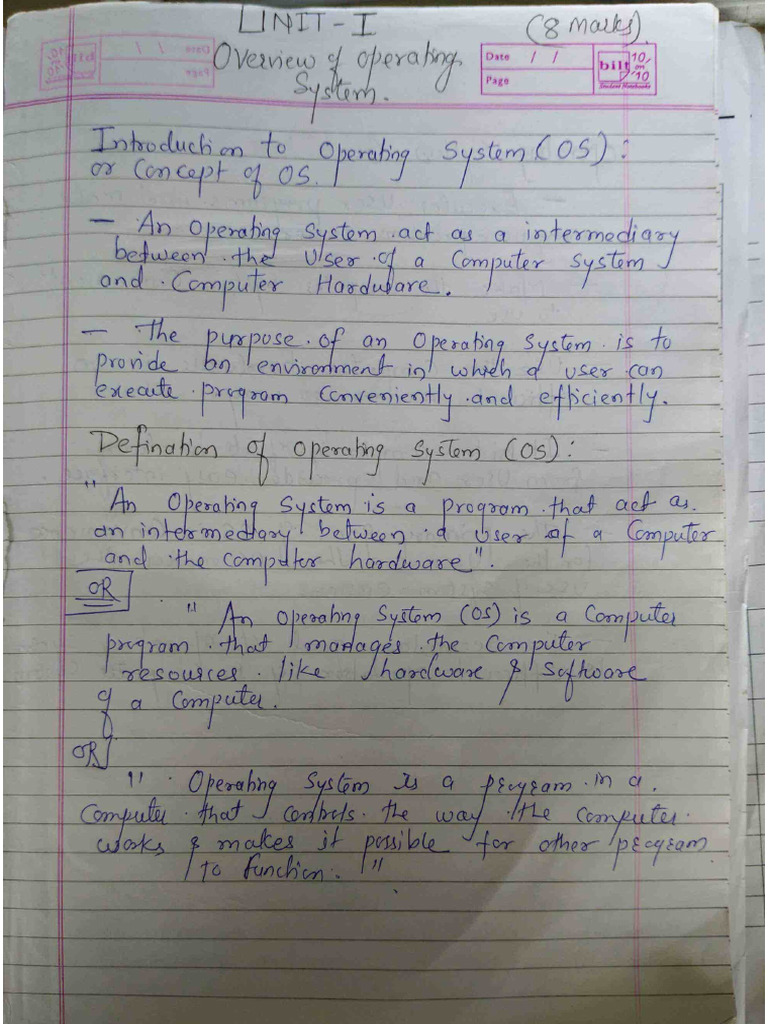 UNIT-I (8 Marks)
Overview of operating
System.
Date / /
Page
bilt 10/on 10
Student Notebooks
Introduction to Operating System (OS):
or Concept of OS.
- An Operating System act as a intermediary
between the User of a Computer System
and Computer Hardware.
- The purpose of an Operating System is to
provide an environment in which a user can
execute program Conveniently and efficiently.
Defination of Operating System (OS):
" An Operating System is a program that act as
an intermediary between a user of a Computer
and the computer hardware".
OR
" An Operating System (OS) is a Computer
program that manages the Computer
resources like hardware & Software
of a Computer.
OR
" Operating System is a program in a
Computer that controls the way the computer
works & makes it possible for other program
to function. "